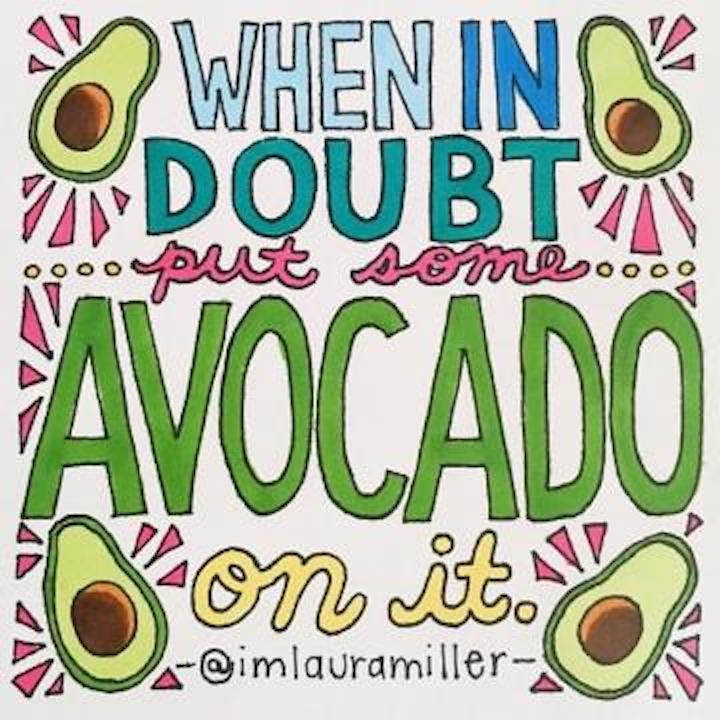 WHEN IN
DOUBT
put some
AVOCADO
on it.
-@imlauramiller-